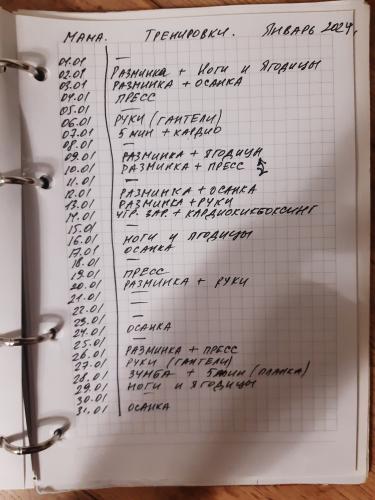 Мама. Тренировки. Январь 2024г.
01.01 —
02.01 Разминка + Ноги и ягодицы
03.01 Разминка + осанка
04.01 Пресс
05.01 —
06.01 Руки (гантели)
07.01 5 мин + кардио
08.01 —
09.01 Разминка + ягодицы
10.01 Разминка + пресс
11.01 —
12.01 Разминка + осанка
13.01 Разминка + руки
14.01 Утр. зар. + кардиокикбоксинг
15.01 —
16.01 Ноги и ягодицы
17.01 Осанка
18.01 —
19.01 Пресс
20.01 Разминка + руки
21.01 —
22.01 —
23.01 —
24.01 Осанка
25.01 —
26.01 Разминка + пресс
27.01 Руки (гантели)
28.01 Зумба + 5 мин (планка)
29.01 Ноги и ягодицы
30.01 —
31.01 Осанка